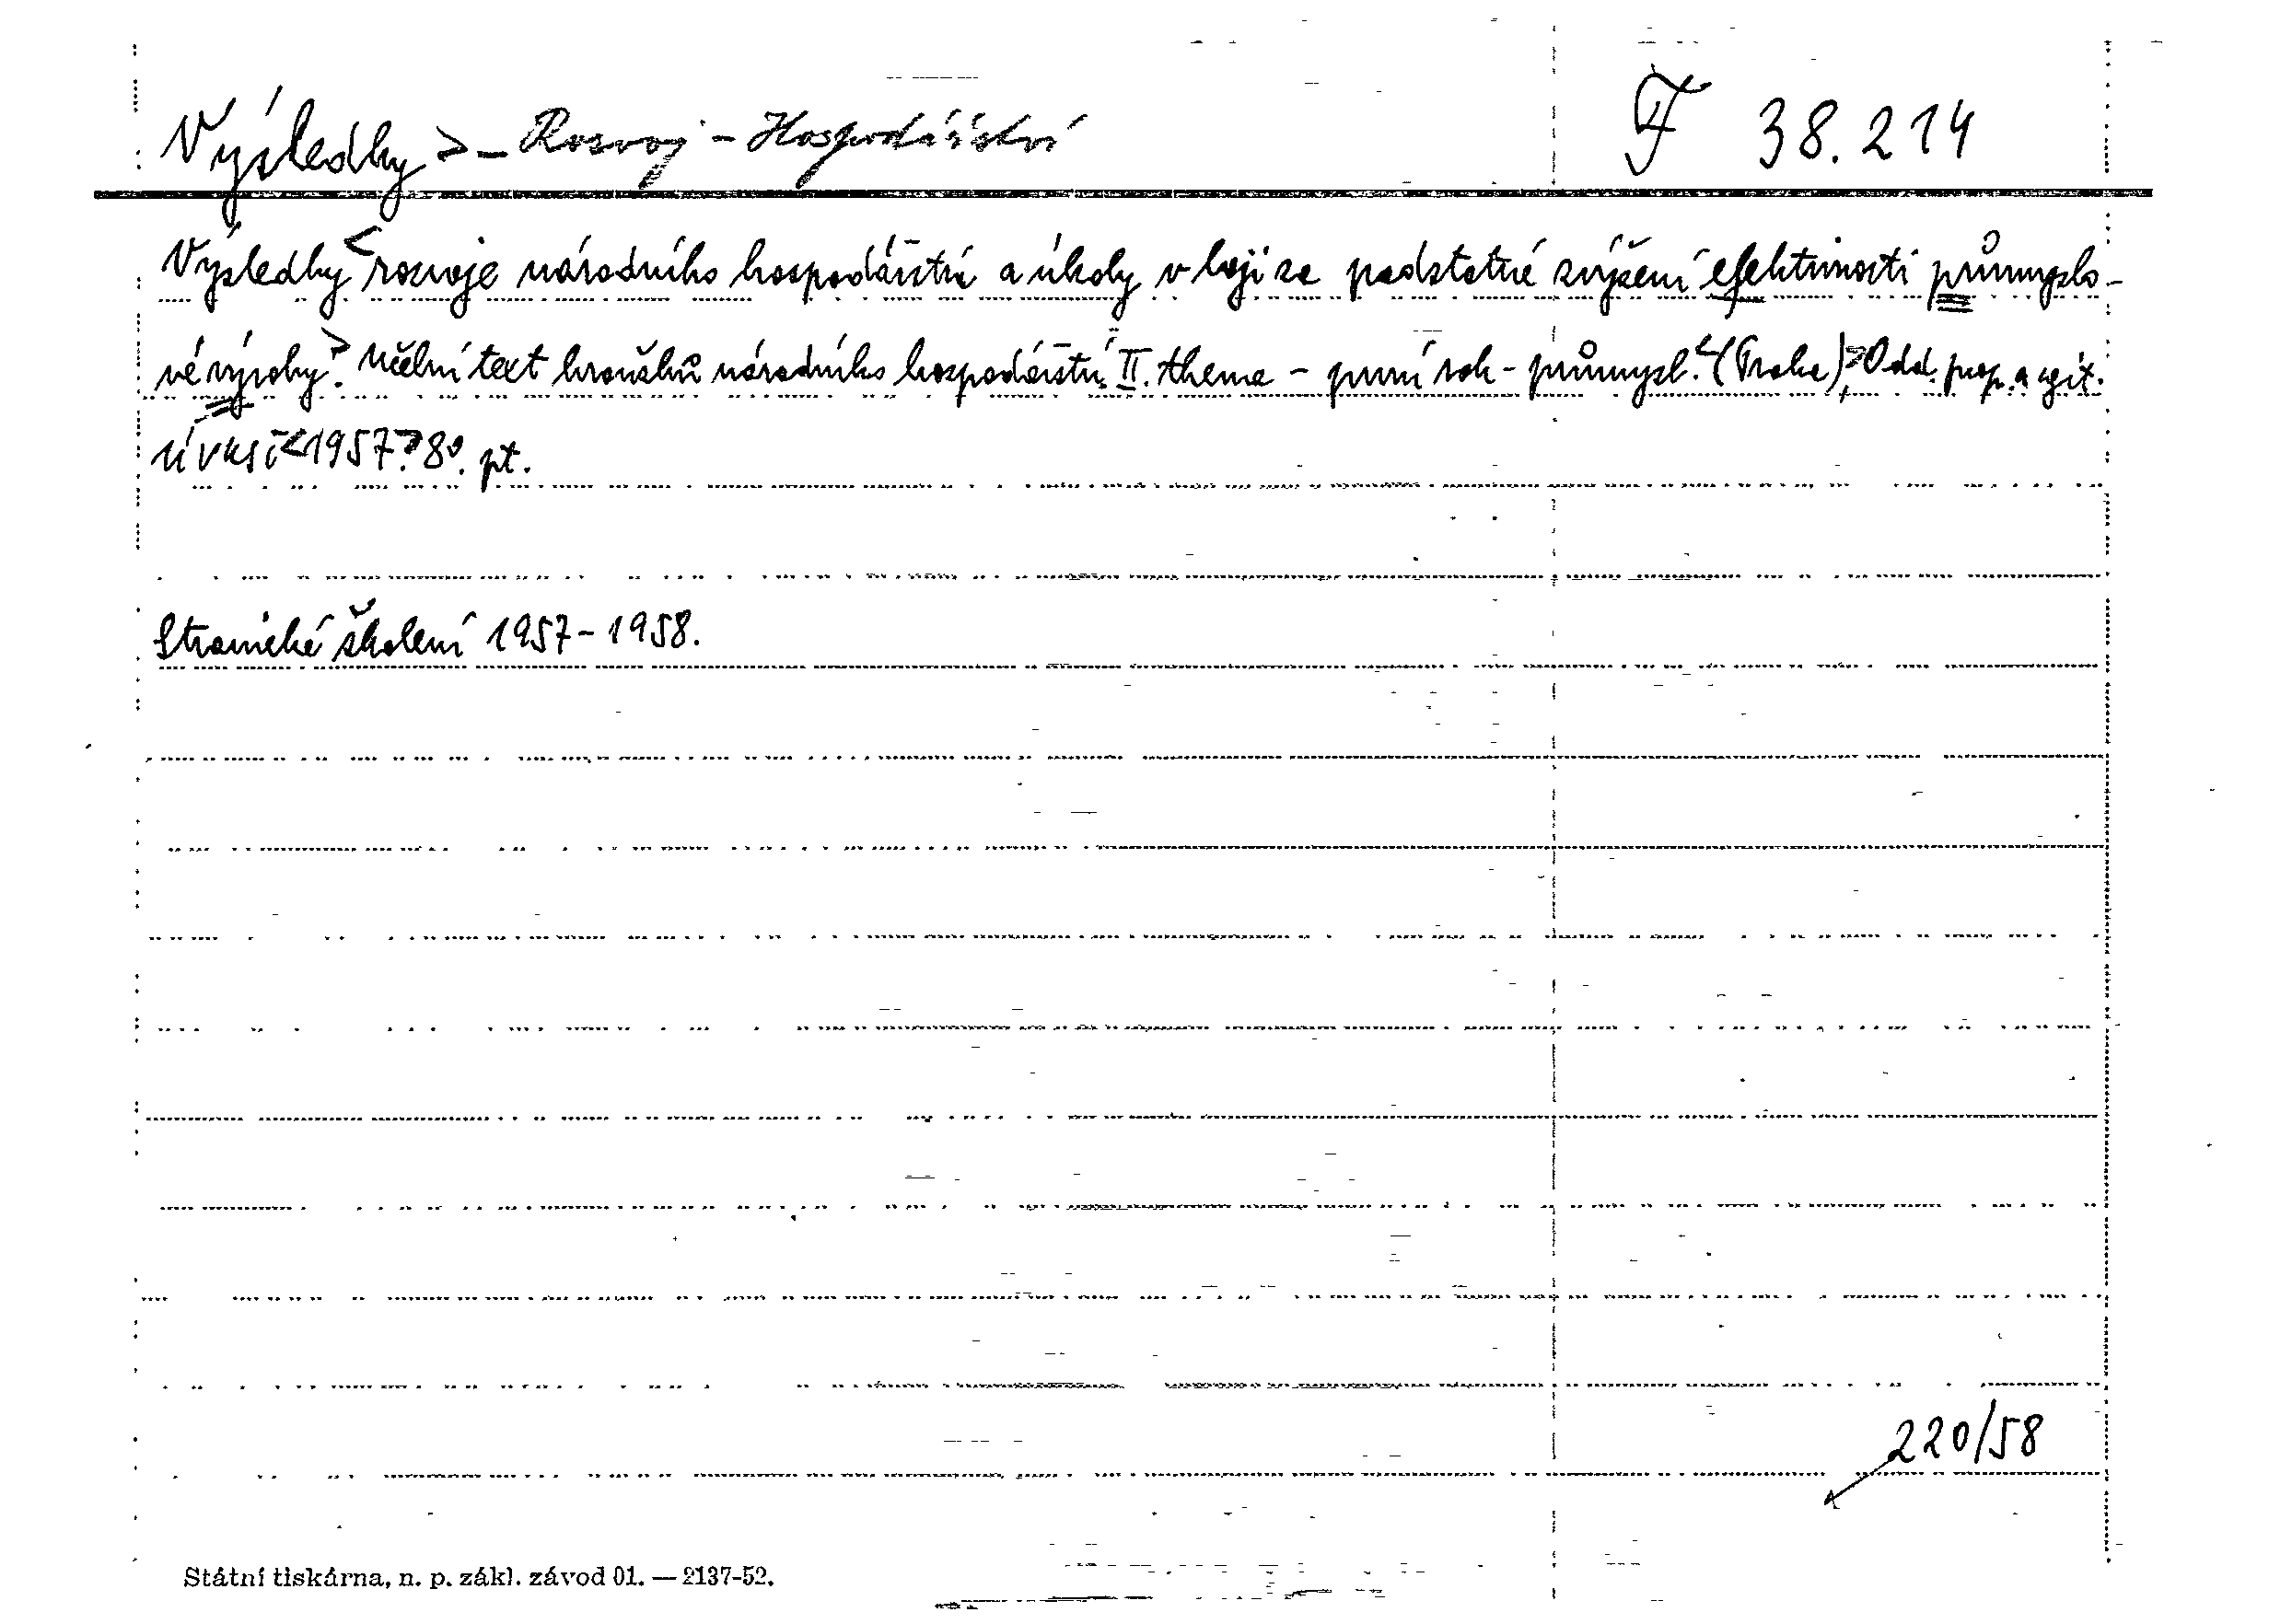 Výsledky > - Rozvoj - Hospodářství F 38.214
Výsledky < rozvoje národního hospodářství a úkoly v boji za podstatné zvýšení efektivnosti průmyslo-
vé výroby >. Učební text kroužků národního hospodářství. II. thema - první rok - průmysl. < (Praha) > Odd. prop. a agit.
ÚV KSČ < 1957. > 8°. pt.
Stranické školení 1957 - 1958.
220/58
Státní tiskárna, n. p. zákl. závod 01. — 2137-52.